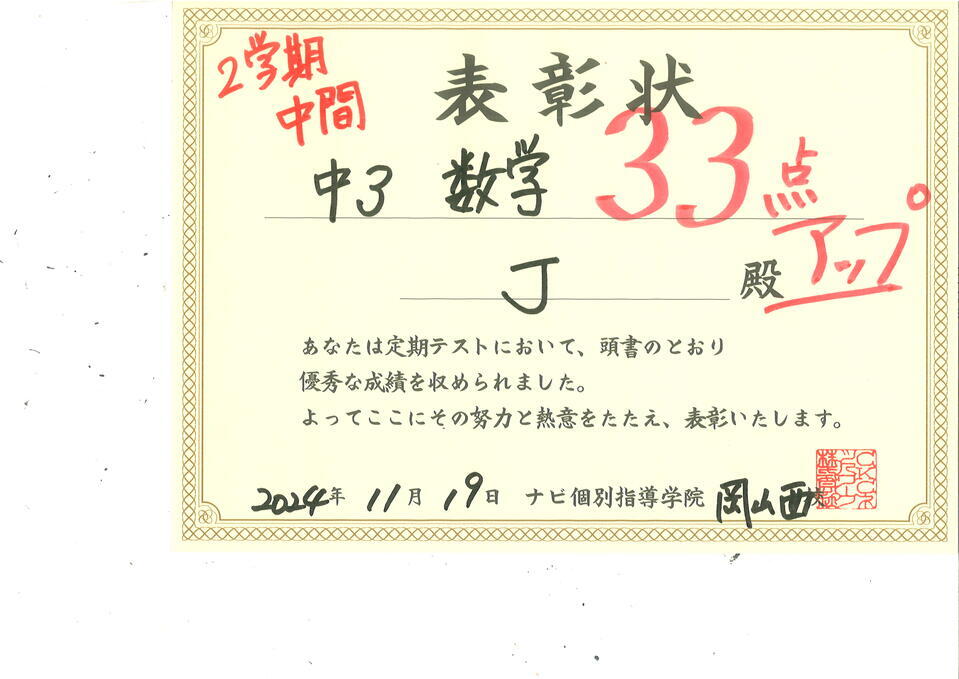 2学期
中間
表彰状
中3 数学 33点
アップ
J 殿
あなたは定期テストにおいて、頭書のとおり
優秀な成績を収められました。
よってここにその努力と熱意をたたえ、表彰いたします。
2024年 11月 19日 ナビ個別指導学院 岡山西校